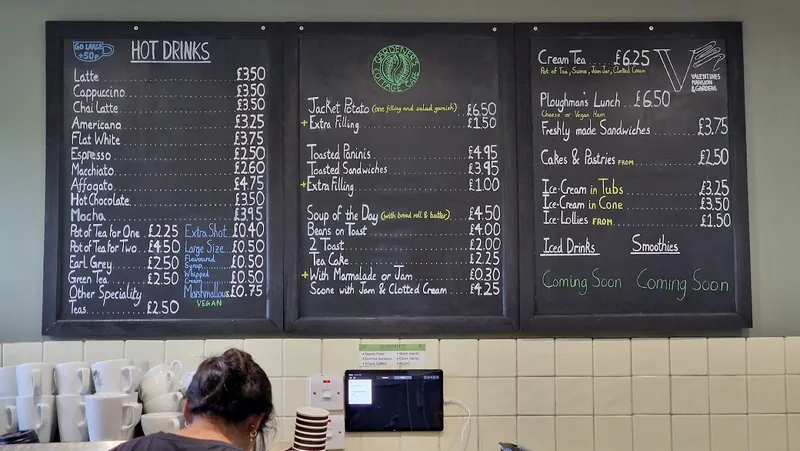 GO LARGE
+50p
HOT DRINKS
Latte £3.50
Cappuccino £3.50
Chai Latte £3.50
Americano £3.25
Flat White £3.75
Espresso £2.50
Macchiato £2.60
Affogato £4.75
Hot Chocolate £3.50
Mocha £3.95
Pot of Tea for One £2.25
Pot of Tea for Two £4.50
Earl Grey £2.50
Green Tea £2.50
Other Speciality
Teas £2.50
Extra Shot £0.40
Large Size £0.50
Flavoured
Syrup £0.50
Whipped
Cream £0.50
Marshmallows £0.75
VEGAN
GARDENER'S
COTTAGE CAFE
Jacket Potato (one filling and salad garnish) £6.50
+ Extra Filling £1.50
Toasted Paninis £4.95
Toasted Sandwiches £3.95
+ Extra Filling £1.00
Soup of the Day (with bread roll & butter) £4.50
Beans on Toast £4.00
2 Toast £2.00
Tea Cake £2.25
+ With Marmalade or Jam £0.30
Scone with Jam & Clotted Cream £4.25
Cream Tea £6.25
Pot of Tea, Scone, Jam Jar, Clotted Cream
V
VALENTINES
MANSION
& GARDENS
Ploughman's Lunch £6.50
Cheese or Vegan Ham
Freshly made Sandwiches £3.75
Cakes & Pastries FROM £2.50
Ice-Cream in Tubs £3.25
Ice-Cream in Cone £3.50
Ice-Lollies FROM £1.50
Iced Drinks
Smoothies
Coming Soon
Coming Soon